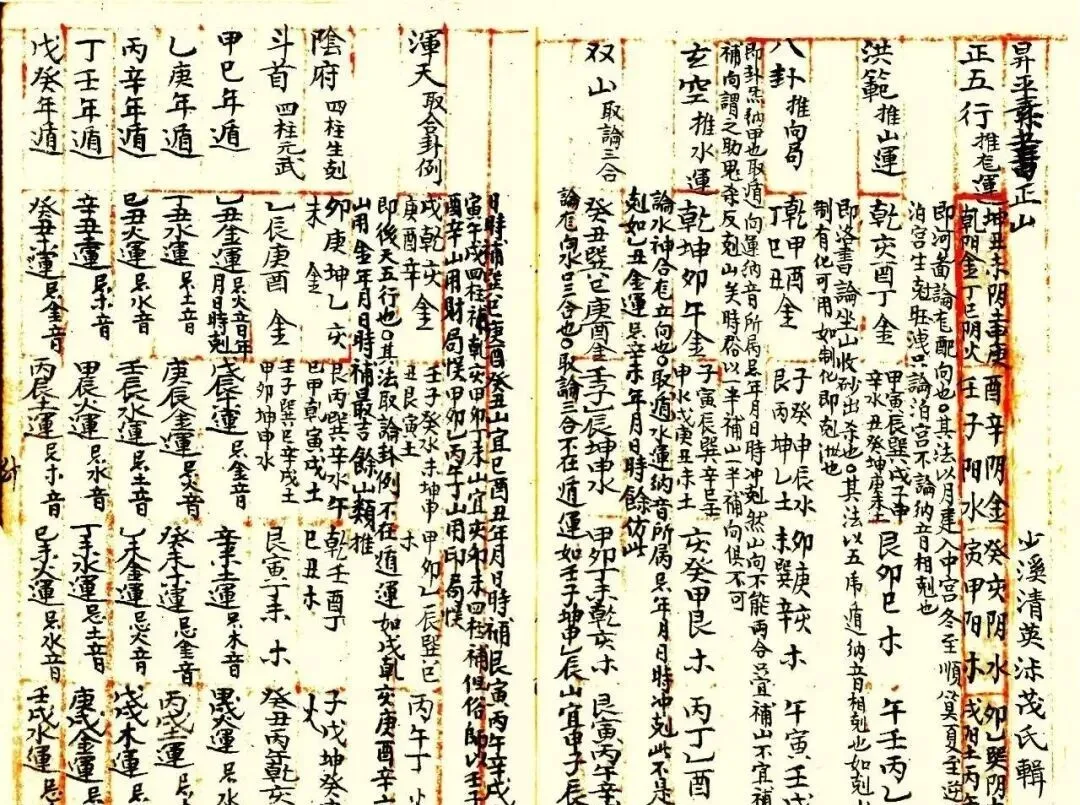 正山 少溪清英涂茂氏輯
正五行 推尨運
坤丑未陰土庚酉辛陰金癸亥陰水卯乙巽陰
乾陽金丁巳陰火壬子陽水寅甲陽木戌陽土丙午
即河圖論尨配向也其法以月建入中宮冬至順算夏至逆
泊宮生尅旺洩只論泊宮不論納音相剋也
洪範 推山運
乾亥酉丁金 甲寅辰巽戌子申辛水丑癸坤庚未土 艮卯巳木 午壬丙乙
即洛書論坐山收砂出杀也其法以五虎遁納音相剋也如剋
制有化可用如制化即剋洪也
八卦 推向局
乾甲酉丁巳丑金 子癸申辰水艮丙坤乙土 卯庚亥未巽辛木 午寅壬戌
即卦炁納甲也取遁向運納音所属忌年月日時冲剋然山向不能两合宜補山不宜補
補向謂之助鬼杀反剋山矣時俗以一半補山一半補向俱不可
玄空 推水運
乾坤卯午金 子寅辰巽辛壬申水戌庚丑未土 亥癸甲艮木 丙丁乙酉
論水神合尨立向也取遁水運納音所属忌年月日時冲剋此不是
剋如乙丑金運忌辛未年月日時餘仿此
双山 取論三合
癸丑巽巳庚酉金壬子乙辰坤申水 甲卯丁未乾亥木 艮寅丙午辛
論尨向水口三合也取論三合不在遁運如壬子坤申乙辰山宜申子辰
日時補巽巳庚酉癸丑山宜巳酉丑年月日時補艮寅丙午辛戌
寅午戌四柱補乾亥甲卯丁未山宜亥卯未四柱補但俗師以壬
酉辛山用財局悞甲卯乙丙午丁山用印局悞
渾天 取合卦例
戌乾亥庚酉辛金 壬子癸水未坤申丑艮寅土 甲卯乙辰巽巳木 丙午丁火
即後天五行也其法取論卦例不在遁運如戌乾亥庚酉辛
山用金年月日時補最吉餘山類推
陰府 四柱生剋
卯庚坤乙亥未金 艮丙巽辛水午巳甲乾寅戌土 乾壬酉丁巳丑木 子戌坤癸
斗首 四柱元武
乙辰庚酉金 壬子巽巳辛戌土甲卯坤申水 艮寅丁未木 癸丑丙午乾亥
甲巳年遁 乙丑金運忌火音年月日時剋 戊辰木運忌金音 辛未土運忌木音 甲戌火運
乙庚年遁 丁丑水運忌土音 庚辰金運忌火音 癸未木運忌金音 丙戌土運
丙辛年遁 己丑火運忌水音 壬辰水運忌土音 乙未金運忌火音 戊戌木運
丁壬年遁 辛丑土運忌木音 甲辰火運忌水音 丁未水運忌土音 庚戌金運
戊癸年遁 癸丑木運忌金音 丙辰土運忌木音 己未火運忌水音 壬戌水運